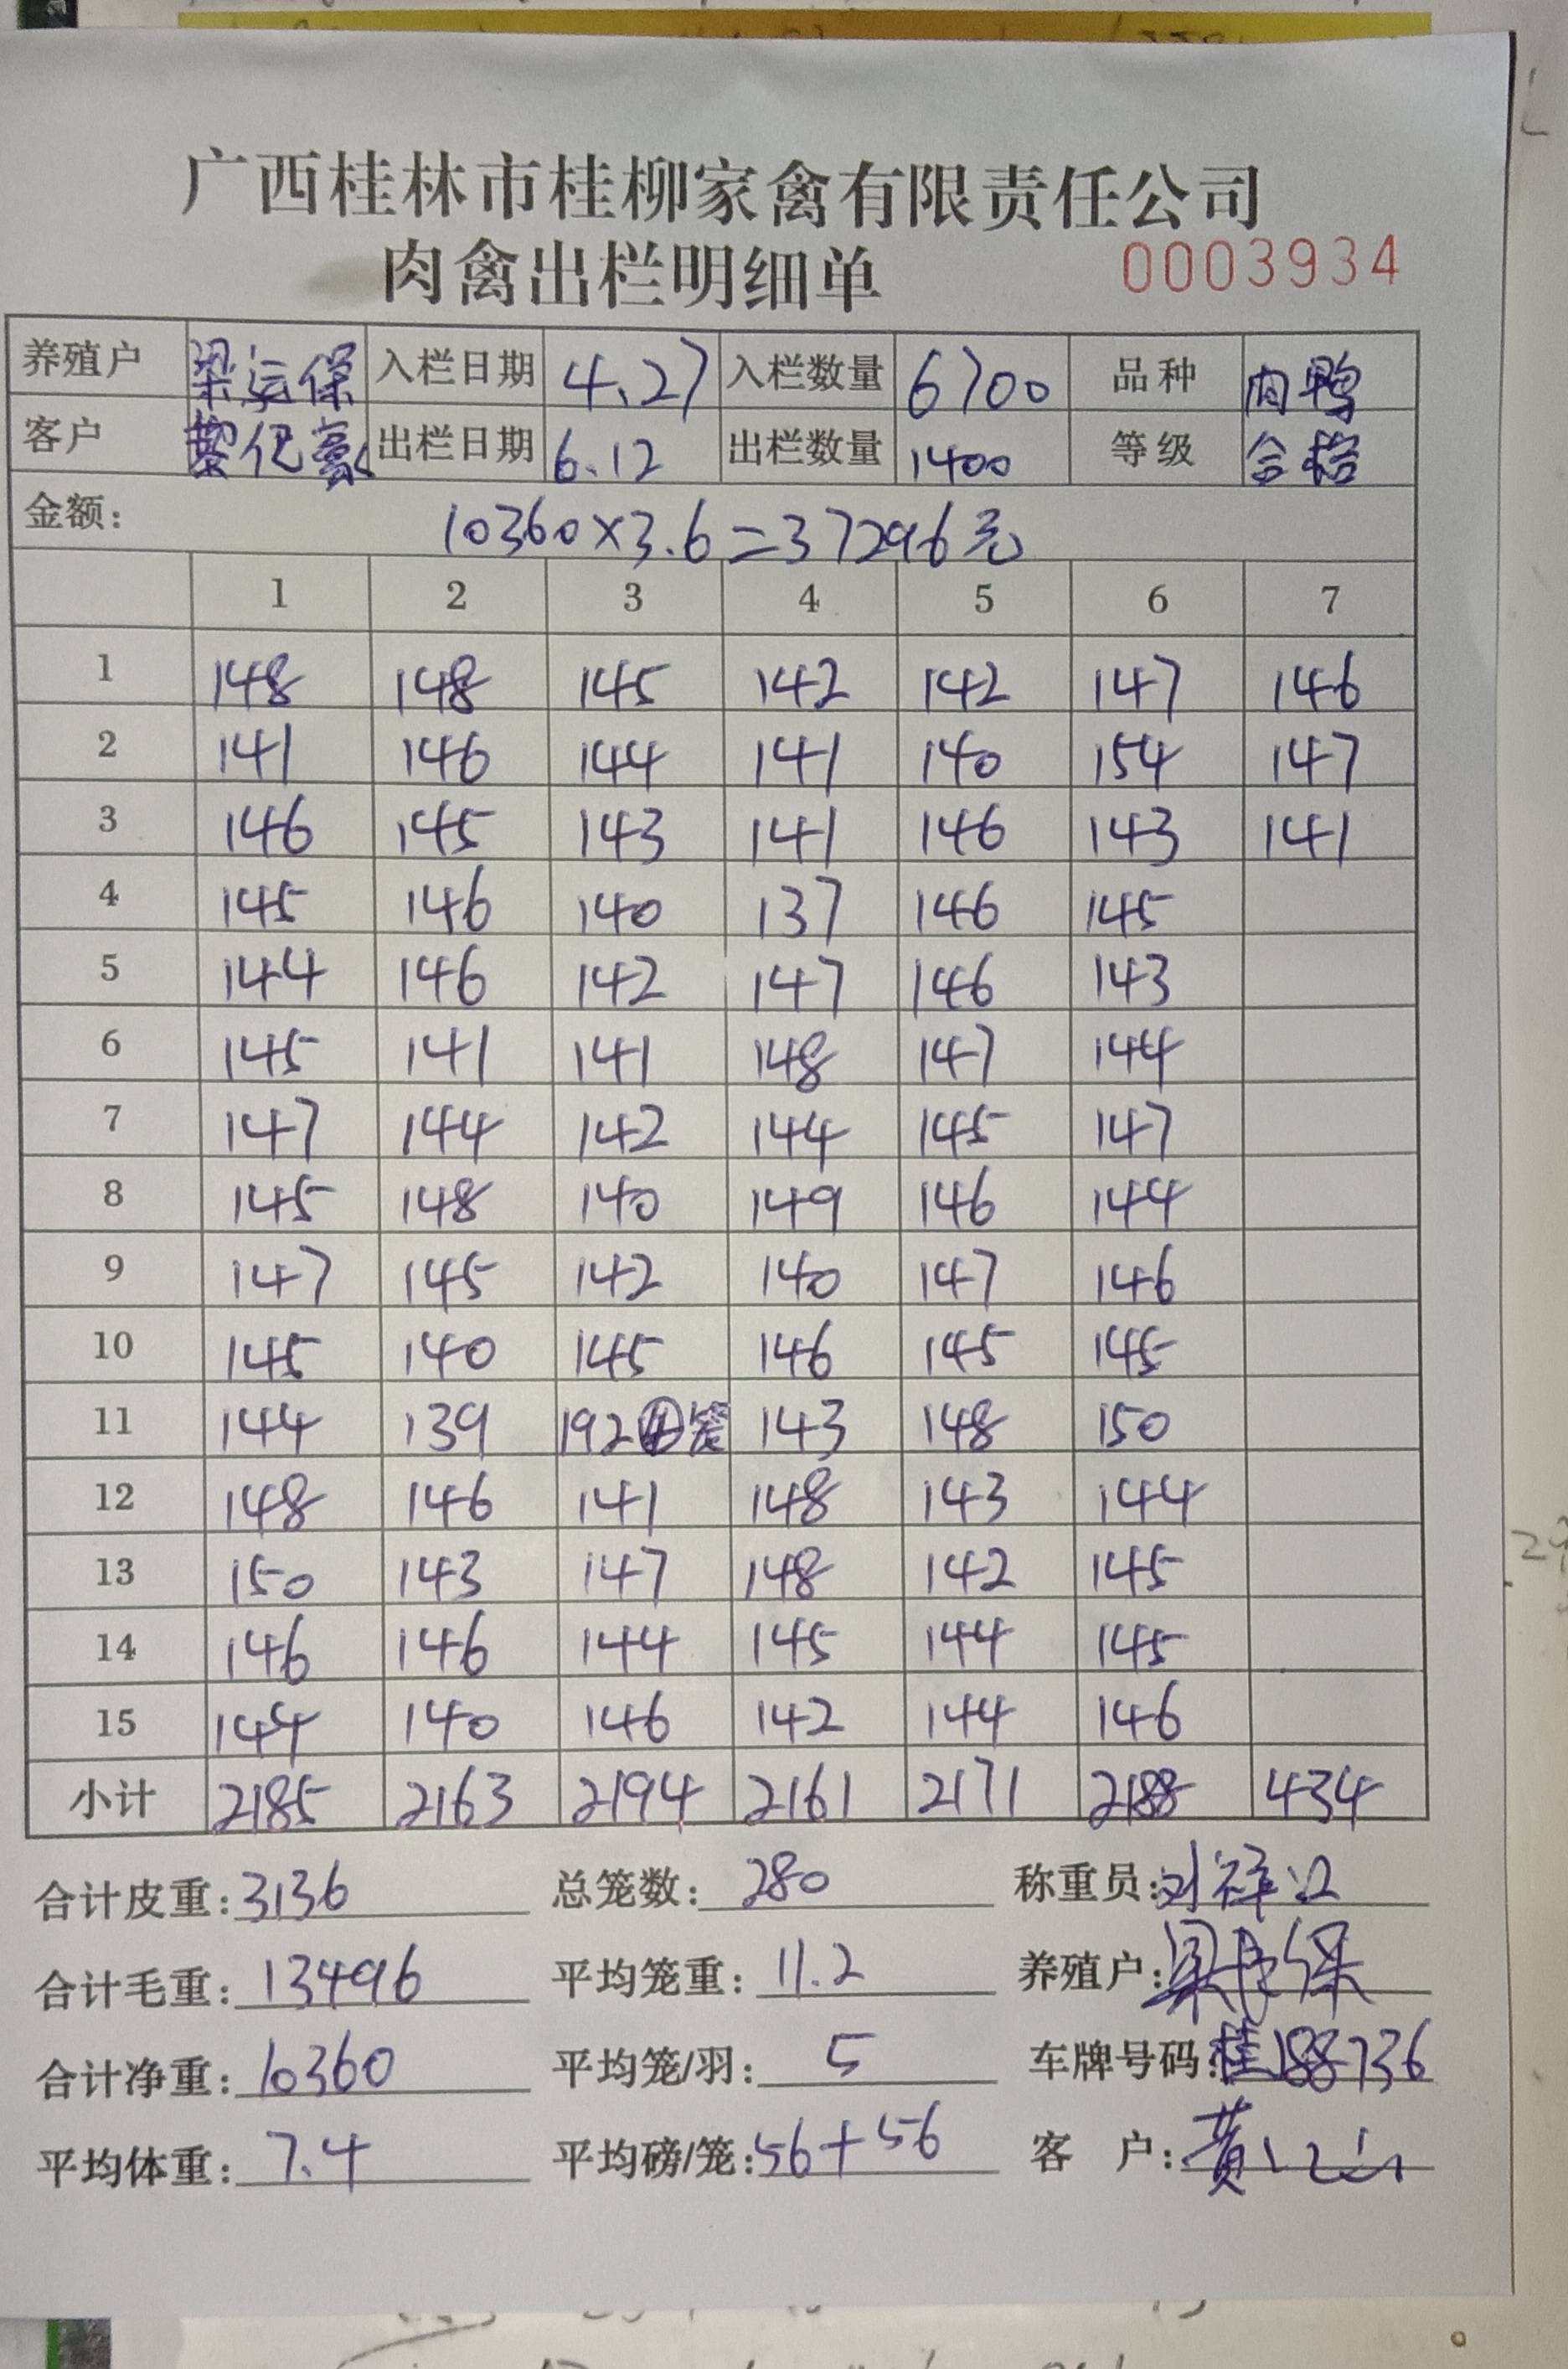 广西桂林市桂柳家禽有限责任公司
肉禽出栏明细单 0003934
养殖户 梁运保 入栏日期 4.27 入栏数量 6700 品种 肉鸭
客户 出栏日期 6.12 出栏数量 1400 等级 合格
金额: 10360×3.6=37296元
1 2 3 4 5 6 7
1 148 148 145 142 142 147 146
2 141 146 144 141 140 154 147
3 146 145 143 141 146 143 141
4 145 146 140 137 146 145
5 144 146 142 147 146 143
6 145 141 141 148 147 144
7 147 144 142 144 145 147
8 145 148 140 149 146 144
9 147 145 142 140 147 146
10 145 140 145 146 145 145
11 144 139 192④笼 143 148 150
12 148 146 141 148 143 144
13 150 143 147 148 142 145
14 146 146 144 145 144 145
15 144 140 146 142 144 146
小计 2185 2163 2194 2161 2171 2188 434
合计皮重:3136 总笼数:280 称重员:刘祥
合计毛重:13496 平均笼重:11.2 养殖户:梁运保
合计净重:10360 平均笼/羽:5 车牌号码:桂188736
平均体重:7.4 平均磅/笼:56+56 客户:黄